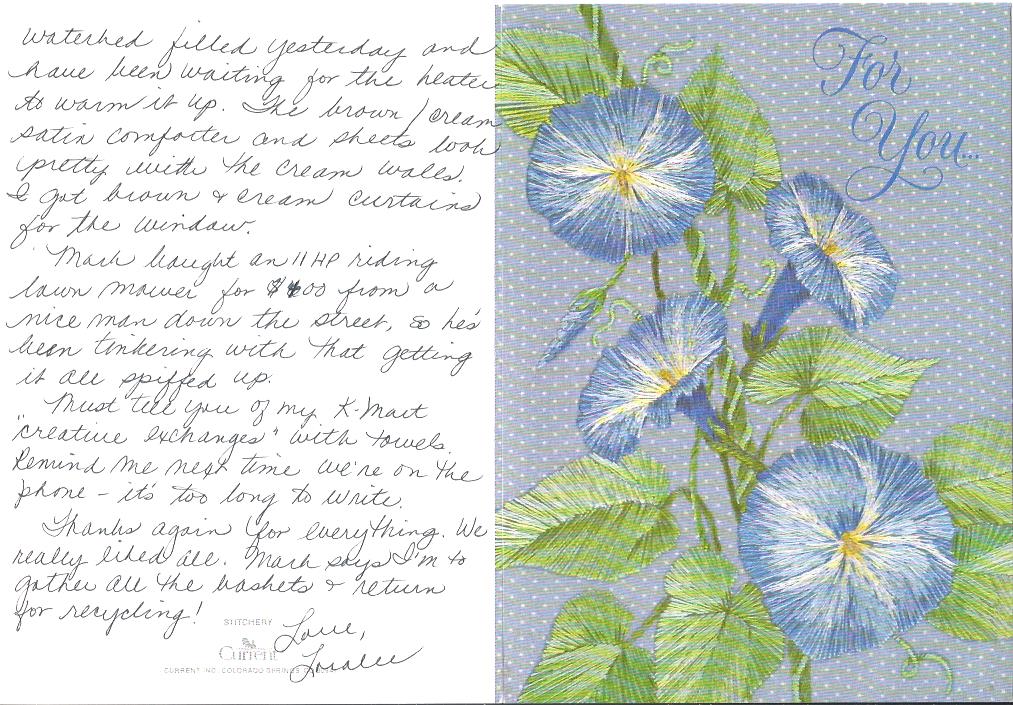 waterbed filled yesterday and
have been waiting for the heater
to warm it up. The brown/cream
satin comforter and sheets look
pretty with the cream walls.
I got brown & cream curtains
for the window.
Mark bought an 11 HP riding
lawn mower for $400 from a
nice man down the street, so he's
been tinkering with that getting
it all spiffed up.
Must tell you of my K-Mart
"creative exchanges" with towels.
Remind me next time we're on the
phone - it's too long to write.
Thanks again for everything. We
really liked all. Mark says I'm to
gather all the baskets & return
for recycling!
Love,
Loralee
STITCHERY
Current
CURRENT INC. COLORADO SPRINGS
For
You...